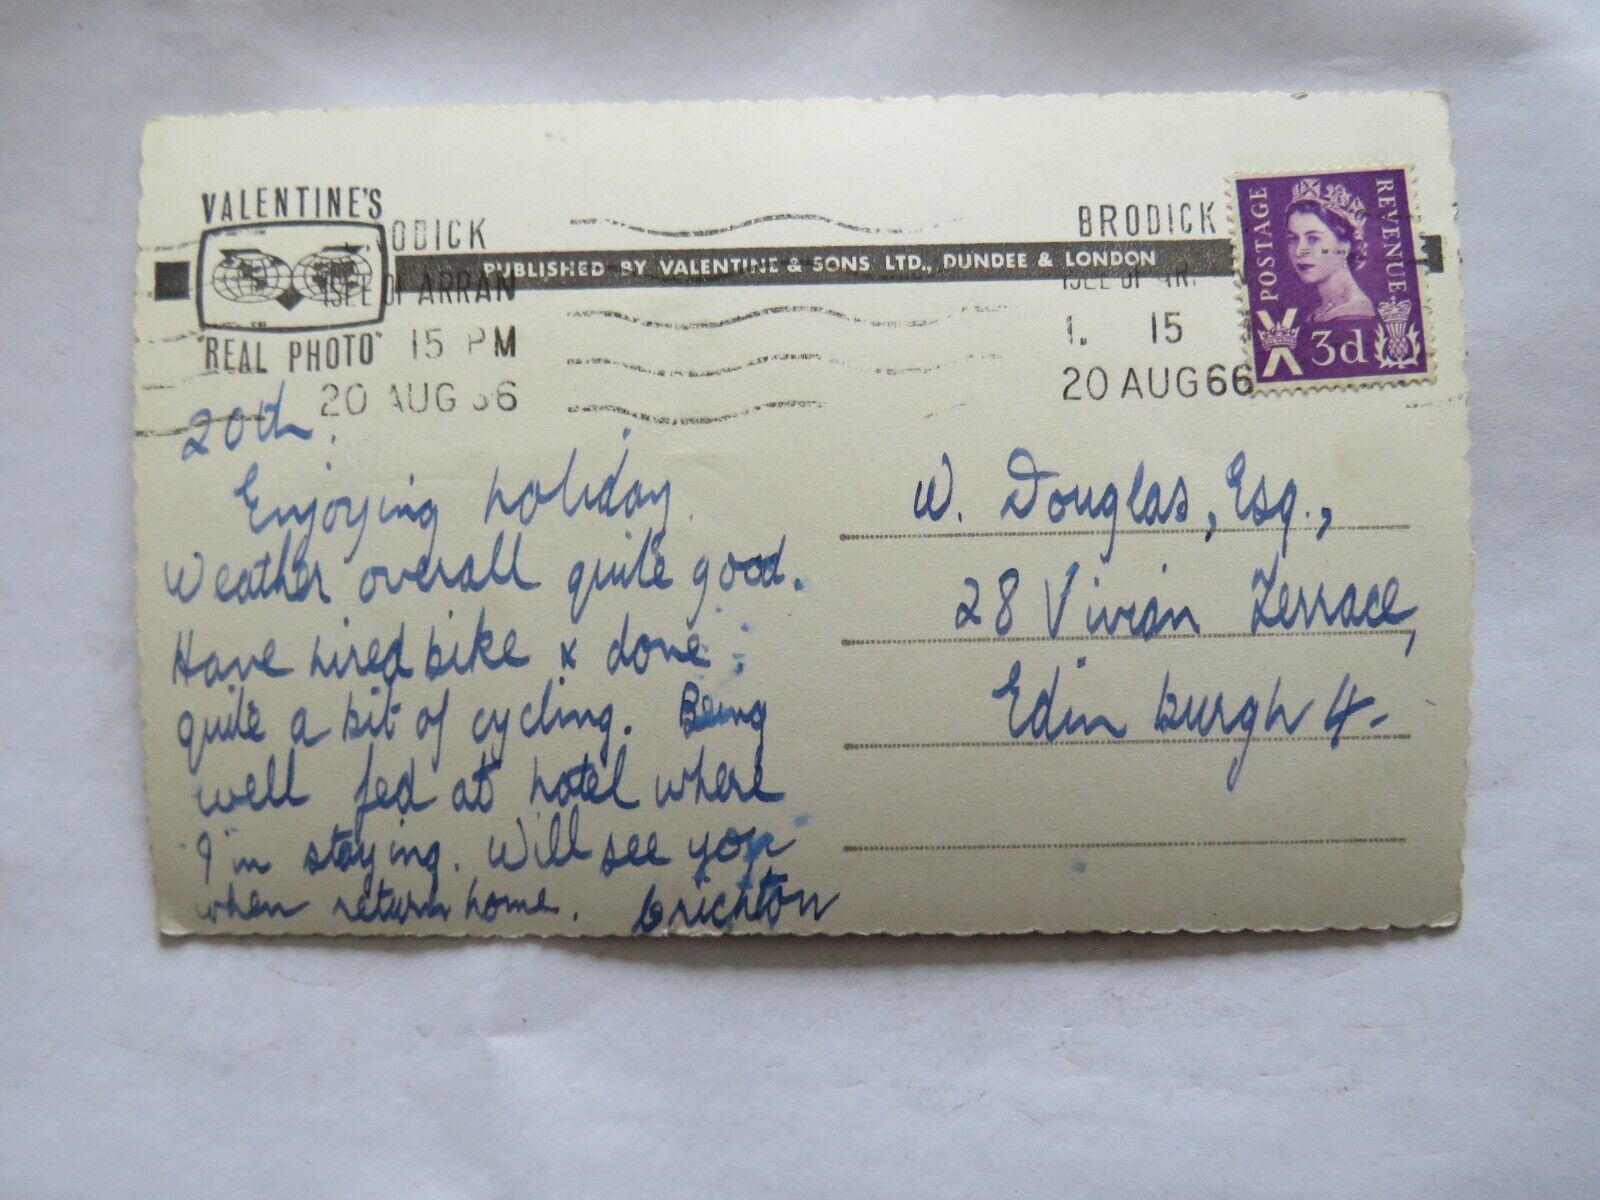 VALENTINE'S
"REAL PHOTO"
PUBLISHED BY VALENTINE & SONS LTD., DUNDEE & LONDON
ODICK
ISLE OF ARRAN
15 PM
20 AUG 66
BRODICK
ISLE OF AR
1. 15
20 AUG 66
POSTAGE
REVENUE
3d
20th.
Enjoying holiday.
Weather overall quite good.
Have hired bike & done
quite a bit of cycling. Being
well fed at hotel where
I'm staying. Will see you
when return home. Crichton
W. Douglas, Esq.,
28 Vivian Terrace,
Edinburgh 4.